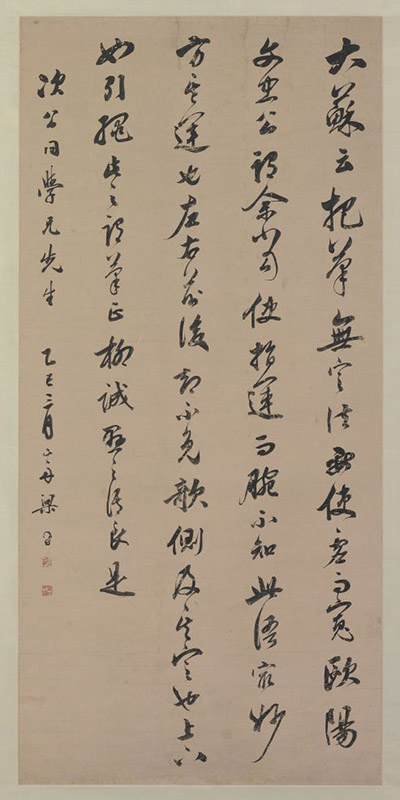 大蘇云把筆無定法要使虛而寬歐陽
文忠公謂余當使指運而腕不知此語最妙
方其運也左右前後却不免欹側及其定也上下
如引繩此之謂筆正柳誠懸之語良是
次公同學兄先生 乙巳三月山舟梁